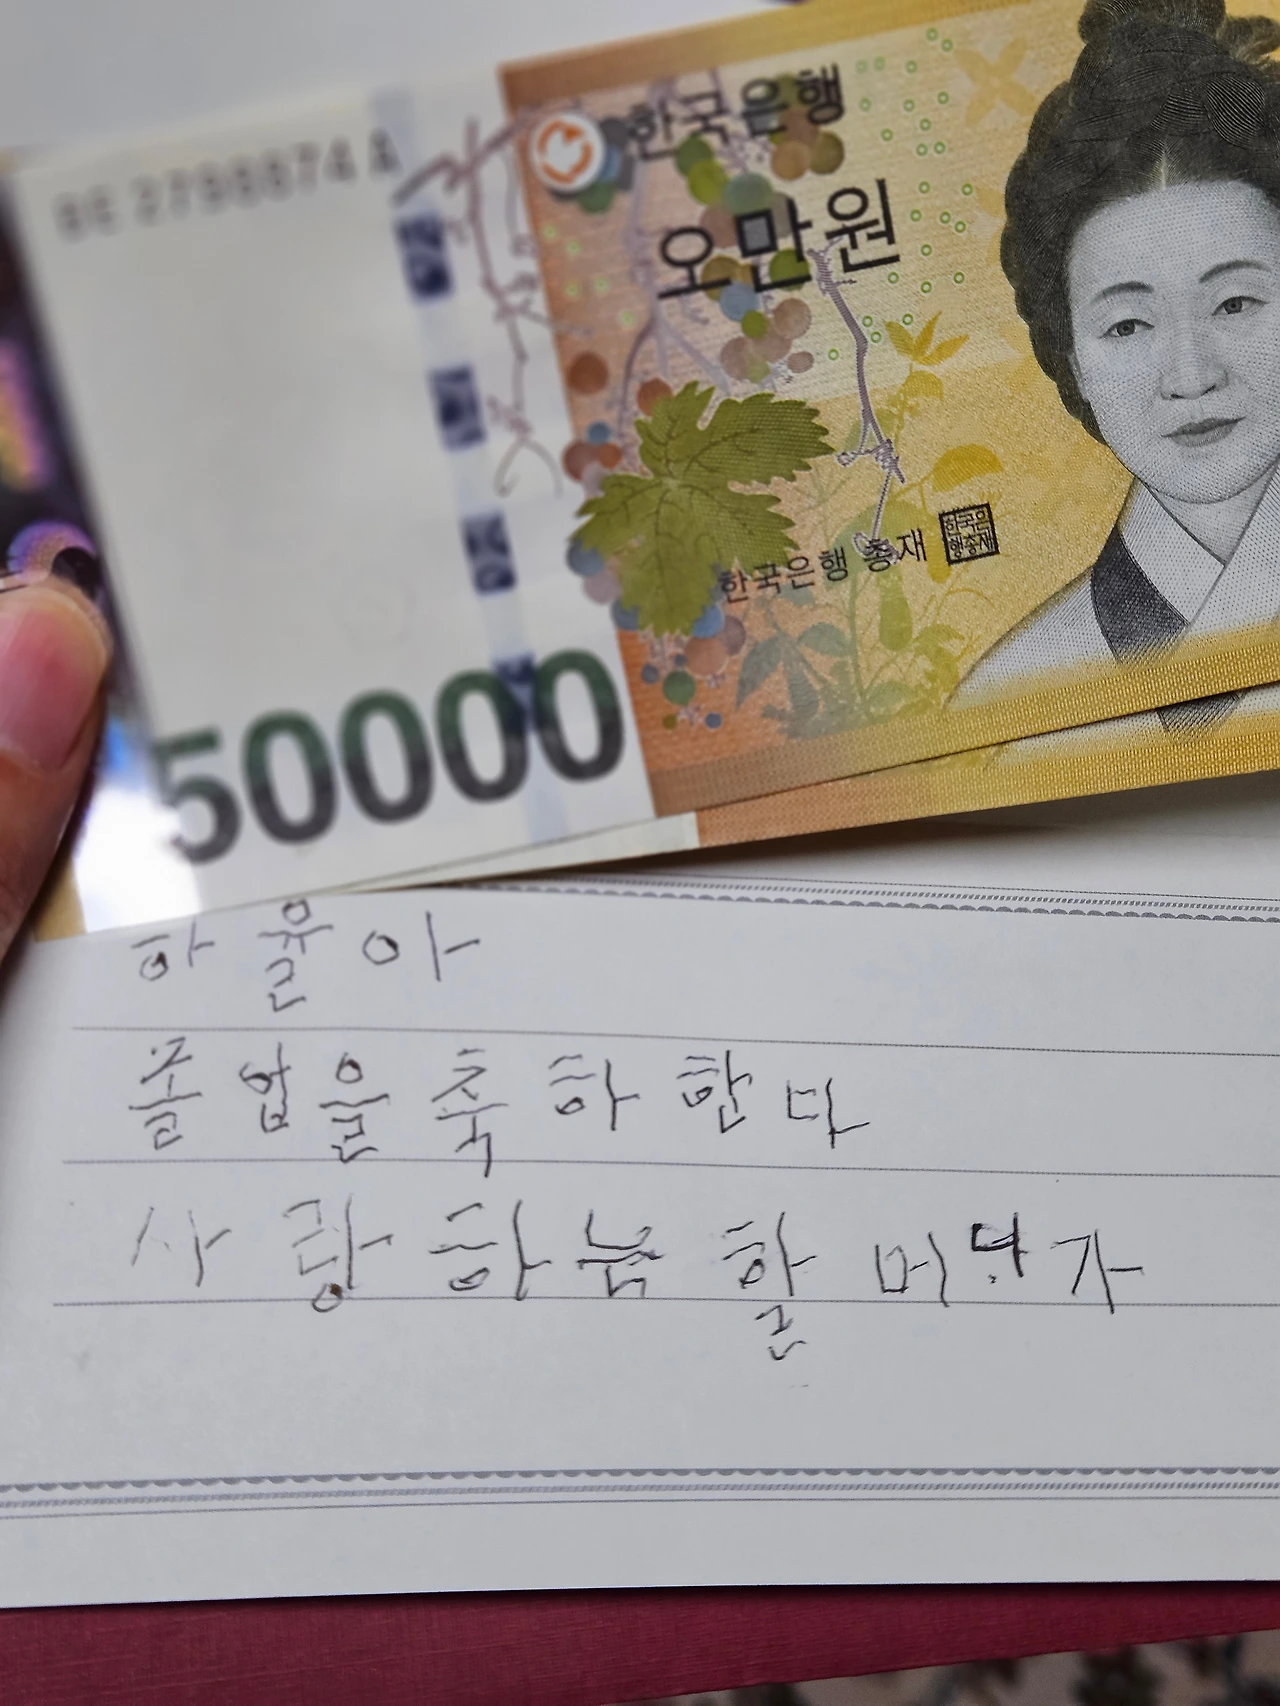 한국은행
오만원
한국은행 총재
한국은
행총재
50000
하율아
졸업을 축하한다
사랑하는 할머니가